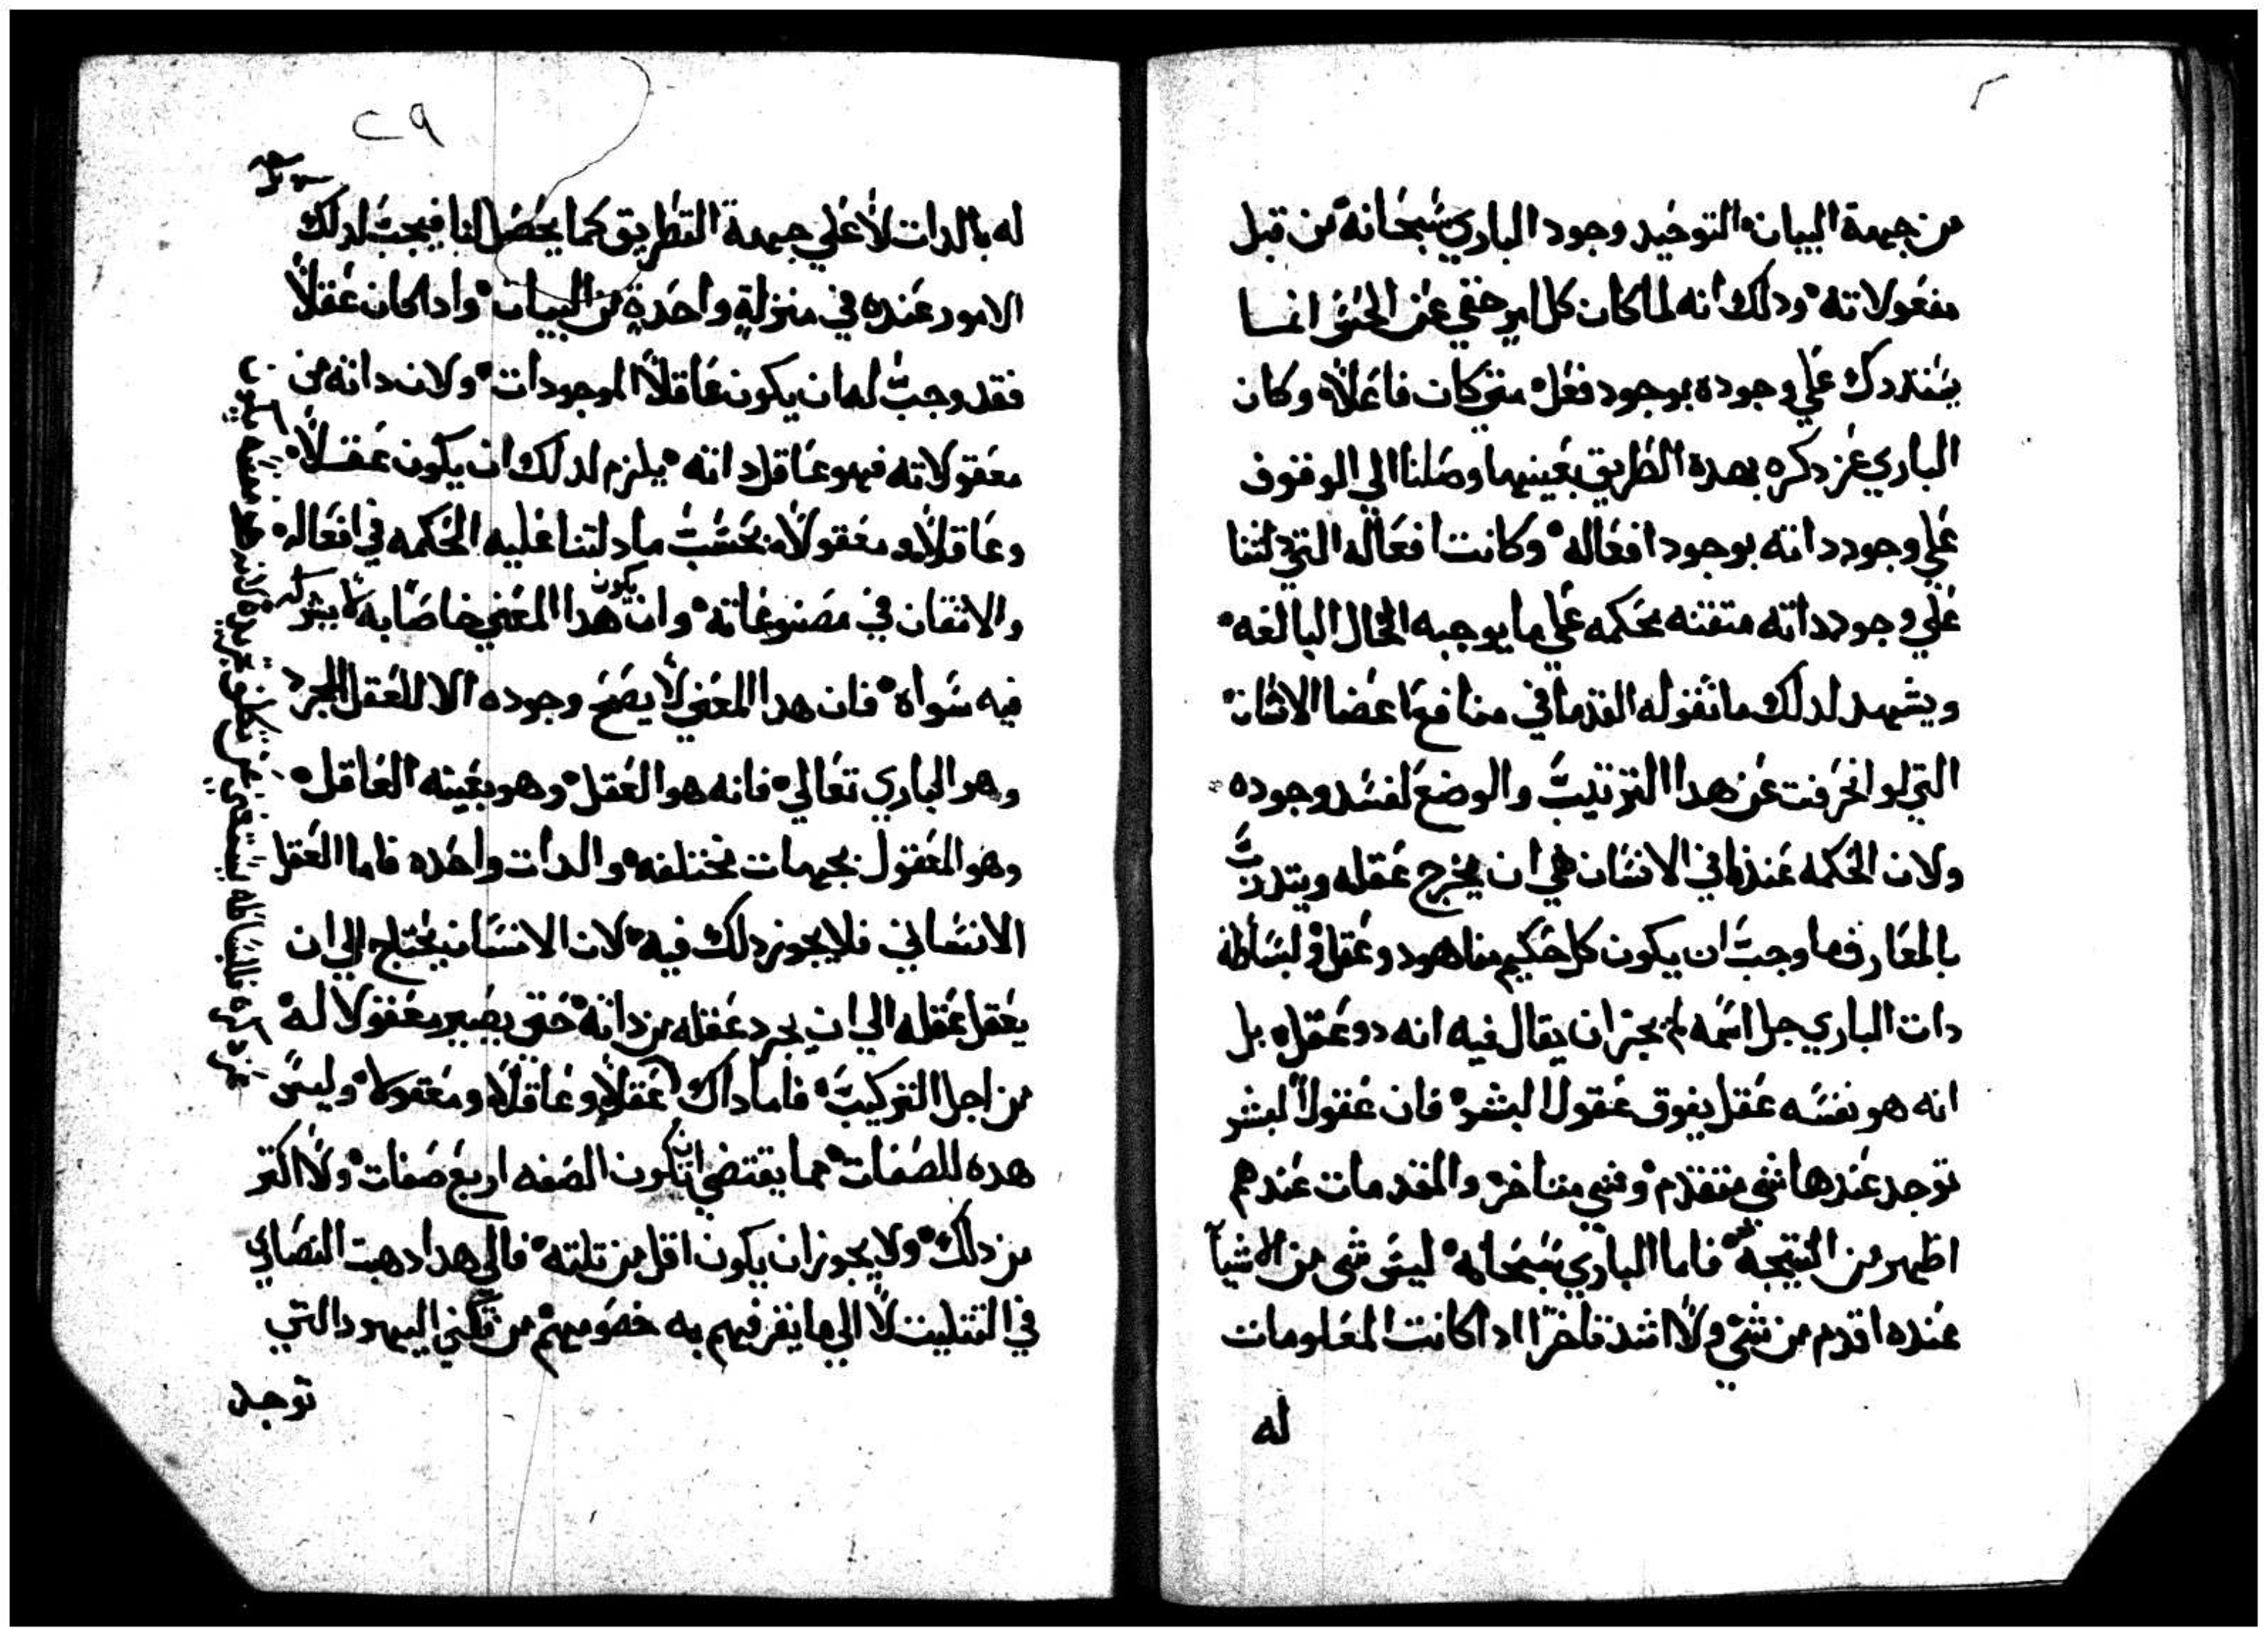 من جهة البيان التوحيد وجود الباري سبحانه من قبل
مفعولاته ودلك انه لما كان كل امر خفي عن الحس انما
يستدرك علي وجوده بوجود فعل متي كان فاعلاً وكان
الباري عز دكره بهده الطريق بعينها وصلنا الي الوقوف
علي وجود داته بوجود افعاله وكانت افعاله التي دلتنا
علي وجود داته متقنه محكمه علي ما يوجبه الحال البالغه
ويشهد لدلك ما تقوله القدما في منافع اعضا الانسان
التي لو انحرفت عن هدا الترتيب والوضع لفسد وجوده
ولان الحكمه عندنا في الانسان هي ان يخرج عقله ويتدرب
بالمعارف ما وجب ان يكون كل حكيم منا هو دو عقل ولبساطة
دات الباري جل اسمه لم يجز ان يقال فيه انه دو عقل بل
انه هو نفسه عقل يفوق عقول البشر فان عقول البشر
توجد عندها شي متقدم وشي متاخر والمقدمات عندهم
اظهر من النتيجه فاما الباري سبحانه ليس شي من الاشيآ
عنده اقدم من شي ولا اشد تاخرا ادا كانت المعلومات
له
٢٩
له بالدات لا علي جهة التطريق كما يحصل لنا فيجب لدلك
الامور عنده في منزلةٍ واحدةٍ من البيان وادا كان عقلاً
فقد وجب له ان يكون عاقلاً الموجودات ولان داته من
معقولاته فهو عاقل داته يلزم لدلك ان يكون عقلاً
وعاقلاً ومعقولاً بحسب ما دلتنا عليه الحكمه في افعاله
والاتقان في مصنوعاته وان يكون هدا المعني خاصاً به لا يشركه
فيه سواه فان هدا المعني لا يصح وجوده الا للعقل المجرد
وهو الباري تعالي فانه هو العقل وهو بعينه العاقل
وهو المعقول بجهات مختلفه والدات واحده فاما العقل
الانساني فلا يجوز دلك فيه لان الانسان يحتاج الي ان
يعقل عقله الي ان يجرد عقله من داته حتي يصير معقولا له
من اجل التركيب فاما داك عقلاً وعاقلاً ومعقولا وليس
هده للصفات مما يقتضي ان تكون الصفه اربع صفات ولا اكتر
من دلك ولا يجوز ان يكون اقل من تلته فالي هدا دهبت النصاري
في التتليت لا الي ما يفرفهم به خصومهم من اليهود التي
توجد